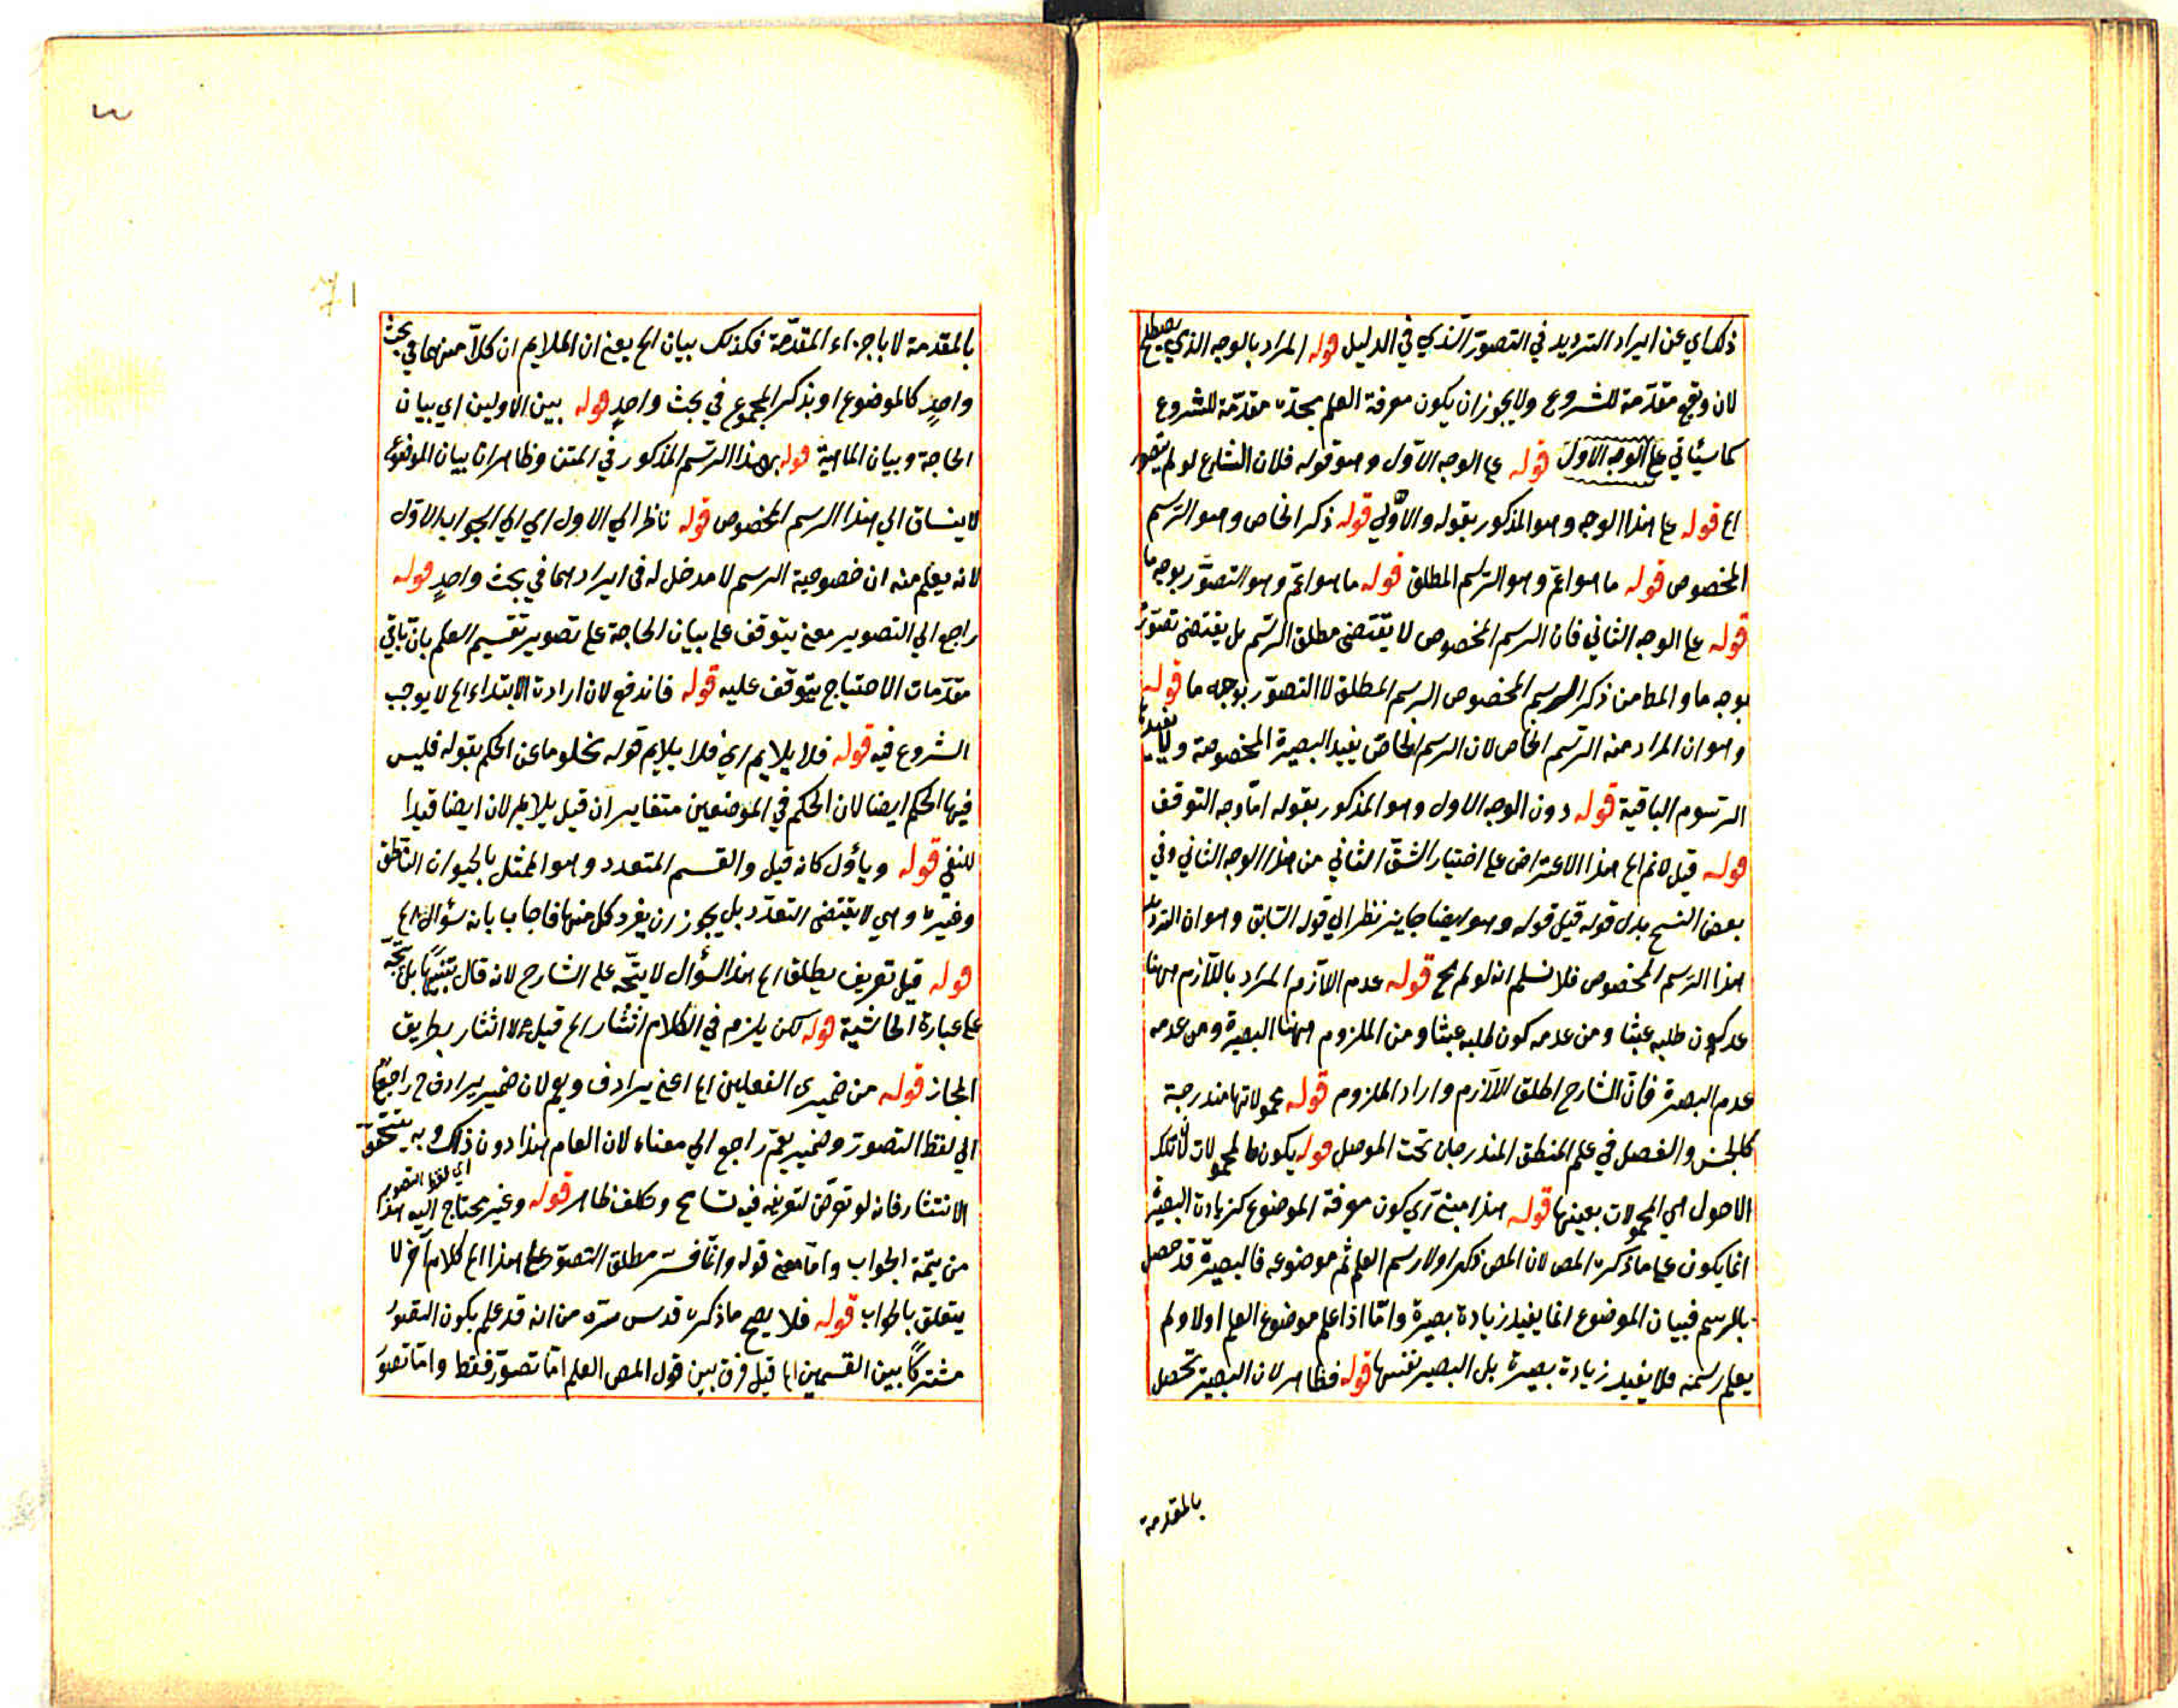 ذلك اي عن ايراد الترديد في التصور الذي في الدليل قوله المراد بالوجه الذي يصطلح
لان وقع مقدّمة للشروع ولا يجوز ان يكون معرفة العلم بحدّه مقدّمة للشروع
كما سيأتي على الوجه الاول قوله على الوجه الاول وهو قوله فلان الشارع لو لم يتصور
الخ قوله على هذا الوجه وهو المذكور بقوله والاولى قوله ذكر الخاص وهو الرسم
المخصوص قوله ما هو اعم وهو الرسم المطلق قوله ما هو اعم وهو التصور بوجه ما
قوله على الوجه الثاني فان الرسم المخصوص لا يقتضى مطلق الرسم بل يقتضى تصور
بوجه ما والمط من ذكر الرسم المخصوص الرسم المطلق لا التصور بوجه ما قوله
وهو ان المراد منه الرسم الخاص لان الرسم الخاص يفيد البصيرة المخصوصة ولا يفيدها
الرسوم الباقية قوله دون الوجه الاول وهو المذكور بقوله اما وجه التوقف
قوله قيل لانم الخ هذا الاعتراض على اختيار الشق الثاني من هذا الوجه الثاني وفي
بعض النسخ بدل قوله قيل قوله وهو ايضا جايز نظر الى قوله السابق وهو ان
هذا الرسم المخصوص فلا نسلم انه لو لم الخ قوله عدم اللازم المراد باللازم ههنا
عدم كون طلبه عبثا ومن عدمه كون طلبه عبثا ومن الملزوم ههنا البصيرة ومن عدمه
عدم البصيرة فان الشارح اطلق اللازم واراد الملزوم قوله محمولاتها مندرجة
كالجنس والفصل في علم المنطق المندرجان تحت الموصل قوله يكون محمولات تلك
الاصول اي المحمولات بعينها قوله هذا مبني اي كون معرفة الموضوع كزيادة البصيرة
انما يكون على ما ذكره المص لان المص ذكر اولا رسم العلم ثم موضوعه فالبصيرة قد حصل
بالرسم فبيان الموضوع انما يفيد زيادة بصيرة واما اذا علم موضوع العلم اولا ولم
يعلم رسمه فلا يفيد زيادة بصيرة بل البصيرة نفسها قوله فظاهر لان البصيرة تحصل
بالمقدمة
٣
بالمقدمة لا باجزاء المقدّمة فكذلك بيان الخ يعني ان الملايم ان كلاّ منهما في بحث
واحدٍ كالموضوع او بذكر المجموع في بحث واحدٍ قوله بين الاولين اي بيان
الحاجة وبيان الماهية قوله بهذا الرسم المذكور في المتن وظاهر ان بيان الموضوع
لا ينساق الى هذا الرسم المخصوص قوله ناظر الى الاول اي الى الجواب الاول
لانه يعلم منه ان خصوصية الرسم لا مدخل له في ايرادهما في بحث واحدٍ قوله
راجع الى التصوير يعني يتوقف على بيان الحاجة على تصوير تقسيم العلم بان باقي
مقدّمات الاحتياج يتوقف عليه قوله فاندفع لان ارادة الابتداء الخ لا يوجب
الشروع فيه قوله فلا يلايم اي فلا يلايم قوله نخلوهما عن الحكم بقوله فليس
فيها الحكم ايضا لان الحكم في الموضعين متغاير ان قيل يلايم لان ايضا قيدا
للنفي قوله ويأول كانه قيل والقسم المتعدد وهو الممثل بالحيوان الناطق
وغيره وهي لا يقتضى التعدد بل يجوز ان يفرد كل منها فاجاب بانه سؤال الخ
قوله قيل تعريف يطلق الخ هذا السؤال لا يتجه على الشارح لانه قال تنبيها بل يتجه
على عبارة الحاشية قوله لكن يلزم في الكلام انتشار الخ قيل لا انتشار بطريق
المجاز قوله من ضميري الفعلين اي اعني يرادف ويعم لان ضمير يرادف راجع
الى لفظ التصور وضمير يعم راجع الى معناه لان العام هذا دون ذلك وبه يتحقق
الانتشار فانه لو تعرض لتعريفه فيه تسامح وتكلف ظاهر قوله وغير محتاج اليه هذا
اي لفظ التصور
من تتمة الجواب واما معنى قوله وانما فسّر مطلق التصور على هذا الخ كلام آخر لا
يتعلق بالجواب قوله فلا يصح ما ذكره قدس سره من انه قد علم بكون التصور
مشتركاً بين القسمين الخ قيل فرق بين قول المص العلم اما تصور فقط واما تصور